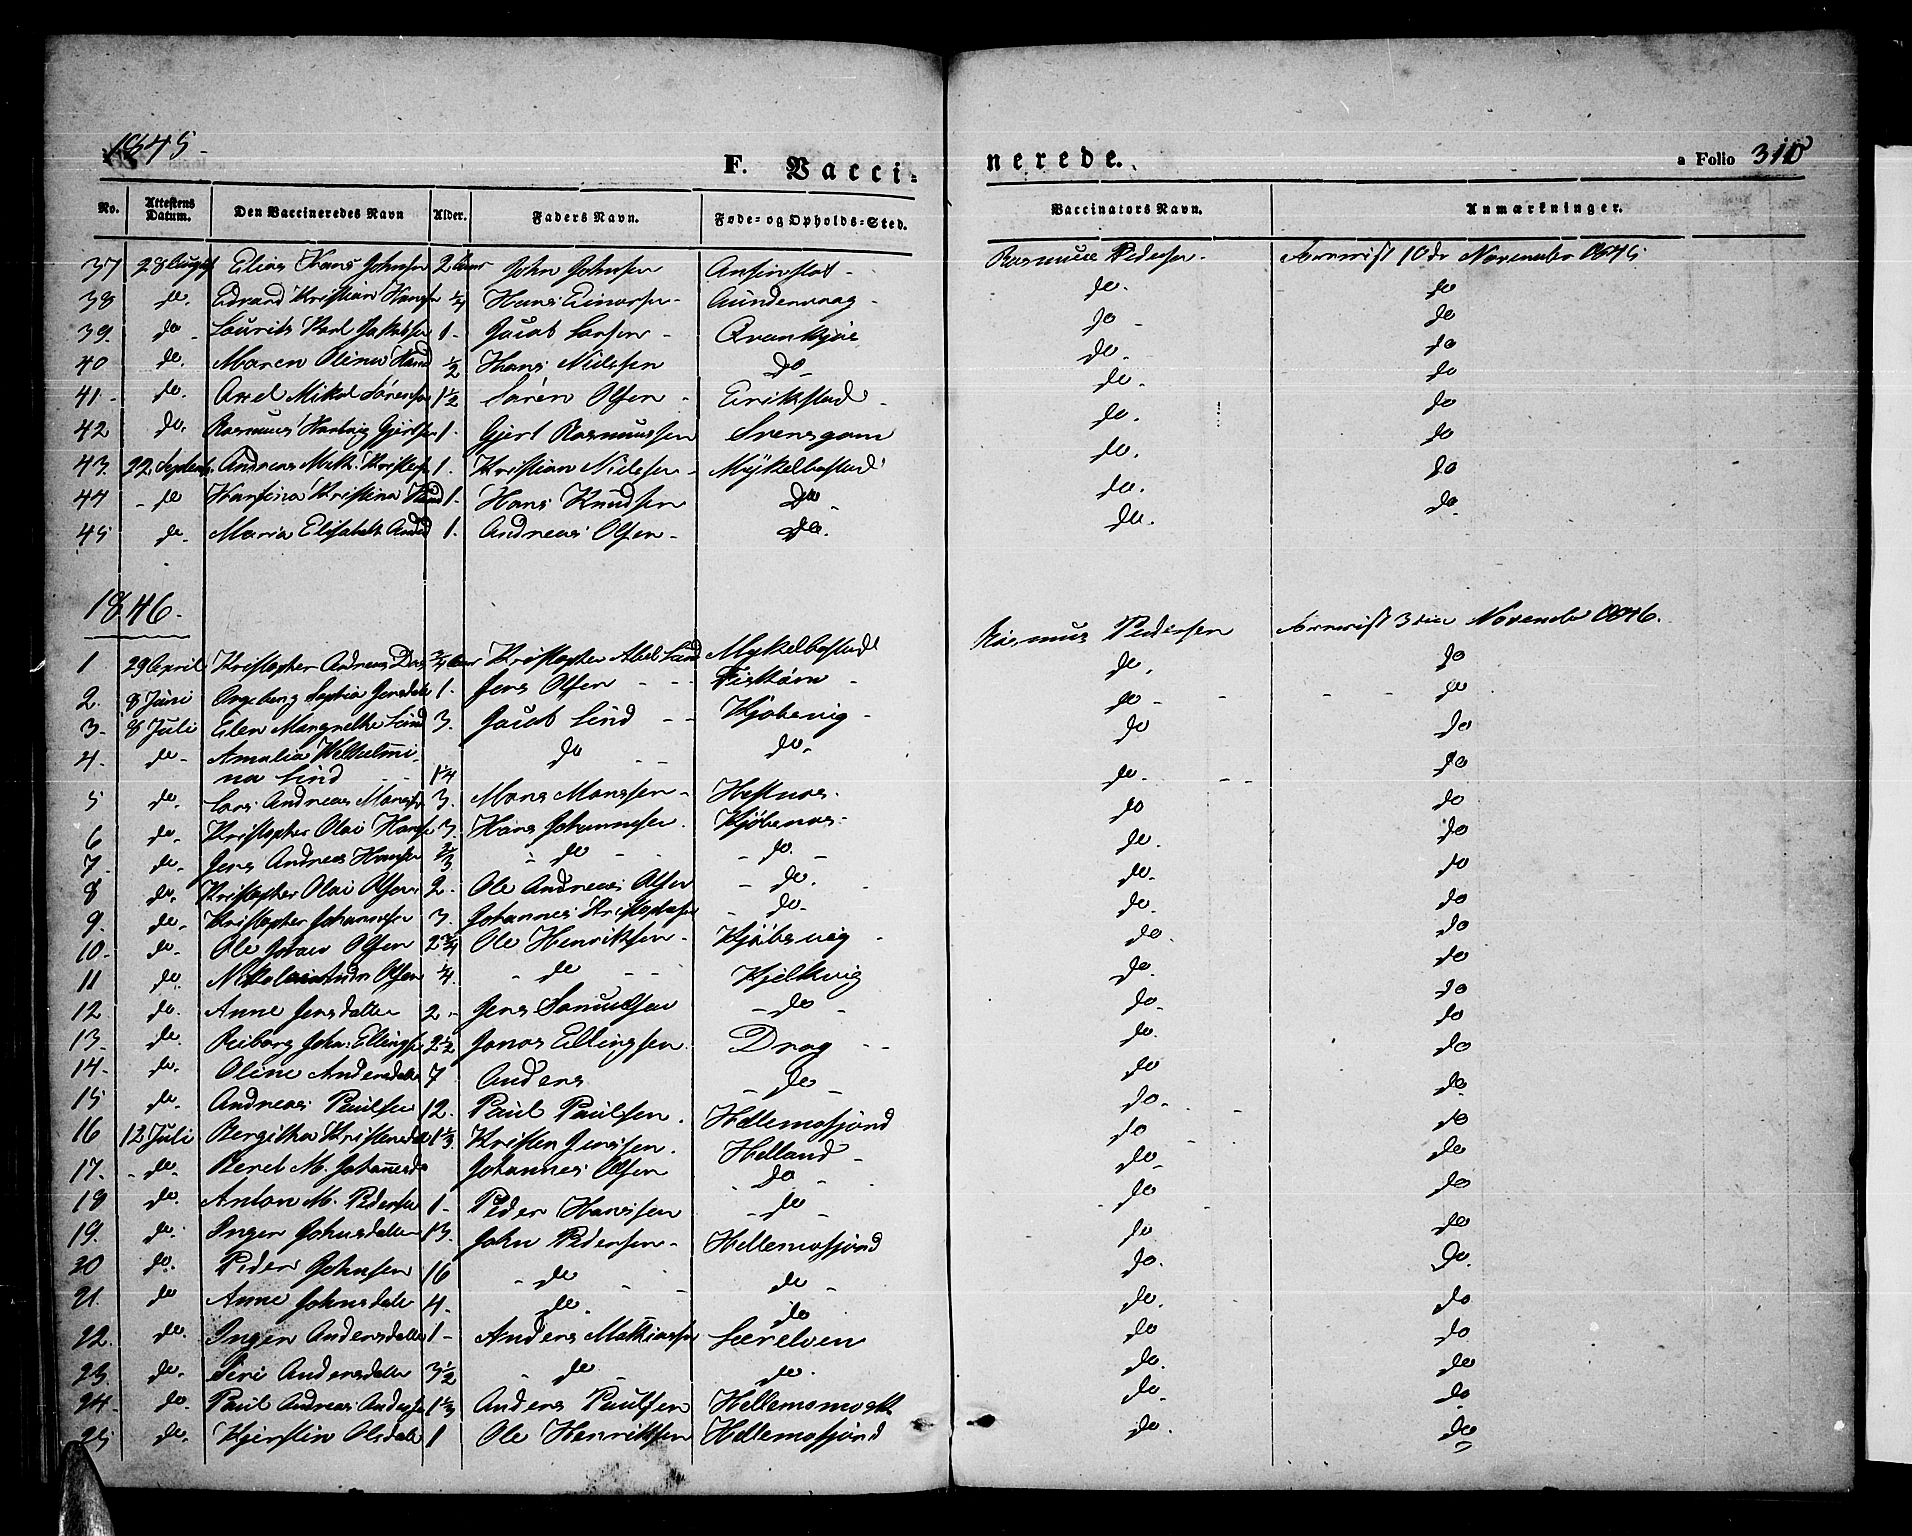 1845.
F. Vaccinerede.
a Folio 310
No. Attestens Datum. Den Vaccineredes Navn Alder. Faders Navn. Føde- og Opholds-Sted. Vaccinators Navn. Anmærkninger.
37 28 August Elias Hans Johnsen 2 Aar John Johnsen Rasmus Pedersen. 10de November 1845
38 do. Edvard Kristian Hansen 1/4 Hans Einarsen do. do
39. do Laurits Karl Jakobsen 1. Jacob Larsen do do
40 do. Maren Olina Hansd 1/2 Hans Nielsen do do. do
41 do. Axel Mikal Sørensen 1 1/2 Søren Olsen Erikstad do. do
42 do. Rasmus Hartvig Gjertsen 1. Gjert Rasmussen Svensgam do. do
43. 22 Septembr. Andreas Math. Kristians 1. Kristian Nielsen Mykelbostad do. do
44 do Hansina Kristina Hansd 1. Hans Knudsen do do. do
45 do. Maria Elisabeth Andrd 1. Andreas Olsen do. do. do.
1846.
1 29 April Kristopher Andreas Kristopher Abel Lind Mykelbostad Rasmus Pedersen 3die November 1846.
2. 8 Juni Ingeborg Sophia Jensdatter 1. Jens Olsen do. do
3. 8 Juli Elen Margrethe Lind 3. Jacob Lind Kjøbsvig do do
4. do Amalia Wilhelmi-
na Lind 1 1/4 do do. do do
5 do. Lars Andreas Monsen 3. Mons Monssen Hestnæs. do. do
6 do. Kristopher Olai Hansen 3. Hans Johannesen. Kjøbsnæs. do do
7. do. Jens Andreas Hansen 2/3 do do. do. do
8 do. Kristopher Olai Olsen 2. Ole Andreas Olsen do. do. do
9. do. Kristopher Johannesen 3. Johannes Kristophersen do. do. do
10. do. Ole Olsen 2 3/4 Ole Henriksen Kjøbsvig do. do
11 do. Nikolai Andr Olsen 1/4 do Kjelkvig do. do
12 do. Anne Jensdatter 2. Jens Samuelsen do do. do
13. do. Johan Ellingsen 2 1/2 Jonas Ellingsen. Drag do. do
14. do. Oline Andersdatter 7 Anders do do do
15 do. Andreas Paulsen 12. Paul Paulsen. Hellemofjord do. do.
16 12 Juli Bergitha Kristensdtr 1 1/3 Kristen Jensen. Helland do do
17. do. Beret M. Johannesdr Johannes Olsen do do do
18 do. Anton M. Pedersen 1. Peder Hanssen do do do
19. do. Inger Johnsdatter 13. John Pedersen Hellemofjord do do
20 do. Peder Johnsen 16 do do do. do.
21. do Anne Johnsdatter 4. do. do do. do
22. do. Inger Andersdatter 1. Anders Mathiassen do do
23. do. Siri Andersdatter 3 1/2 do do. do. do
24. do. Paul Andreas Andersen 1 1/3 Anders Paulsen Hellemomark do. do
25 do. Kjerstin Olsdatter 1 Ole Henriksen Hellemofjord do. do